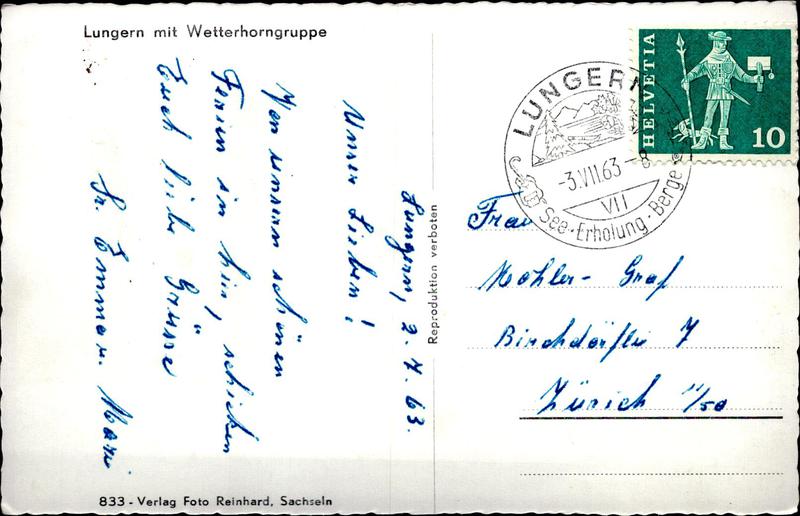 Lungern mit Wetterhorngruppe
Lungern, 2.7.63.
Unsere Lieben!
Von unsern schönen
Ferien in hier, schicken
Euch liebe Grüsse
Sr. Emma u. Marie
833 - Verlag Foto Reinhard, Sachseln
Reproduktion verboten
LUNGERN
-3.VII.63-8
VII
See · Erholung · Berge
HELVETIA
10
Frau
Mohler- Graf
Birchdörfli 7
Zürich 11/50